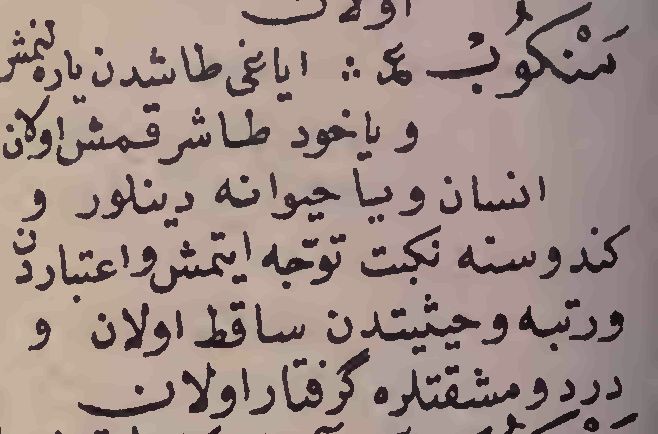 اولان
مَنْكُوبْ عـ : اياغى طاشدن ياره لنمش
و ياخود طاشر قمش اولان
انسان و يا حيوانه دينلور و
كندوسنه نكبت توجّه ايتمش و اعتباردن
و رتبه و حيثيتدن ساقط اولان و
درد و مشقتلره گرفتار اولان